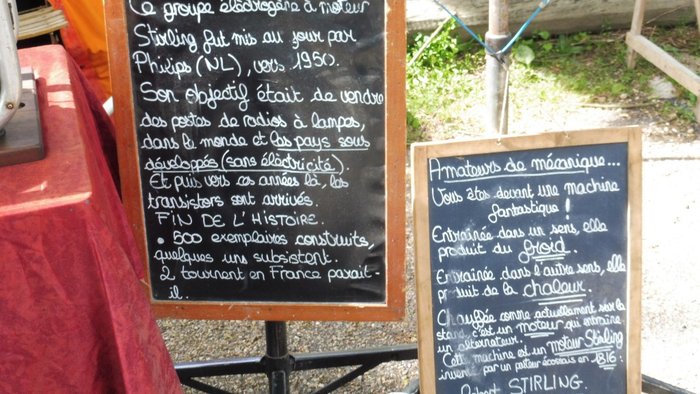 Ce groupe électrogène à moteur
Stirling fut mis au jour par
Philips (NL), vers 1950.
Son objectif était de vendre
des postes de radios à lampes,
dans le monde et les pays sous
développés (sans éléctricité).
Et puis vers ces années là, les
transistors sont arrivés.
FIN DE L'HISTOIRE.
• 500 exemplaires construits,
quelques uns subsistent.
2 tournent en France parait-
il.
Amateurs de mécanique...
Vous êtes devant une machine
fantastique !
Entrainée dans un sens, elle
produit du froid.
Entrainée dans l'autre sens, elle
produit de la chaleur.
Chauffée comme actuellement sur le
stand, c'est un moteur qui entraine
un alternateur.
Cette machine est un moteur Stirling
inventé par un pasteur écossais en 1816 :
Robert STIRLING.